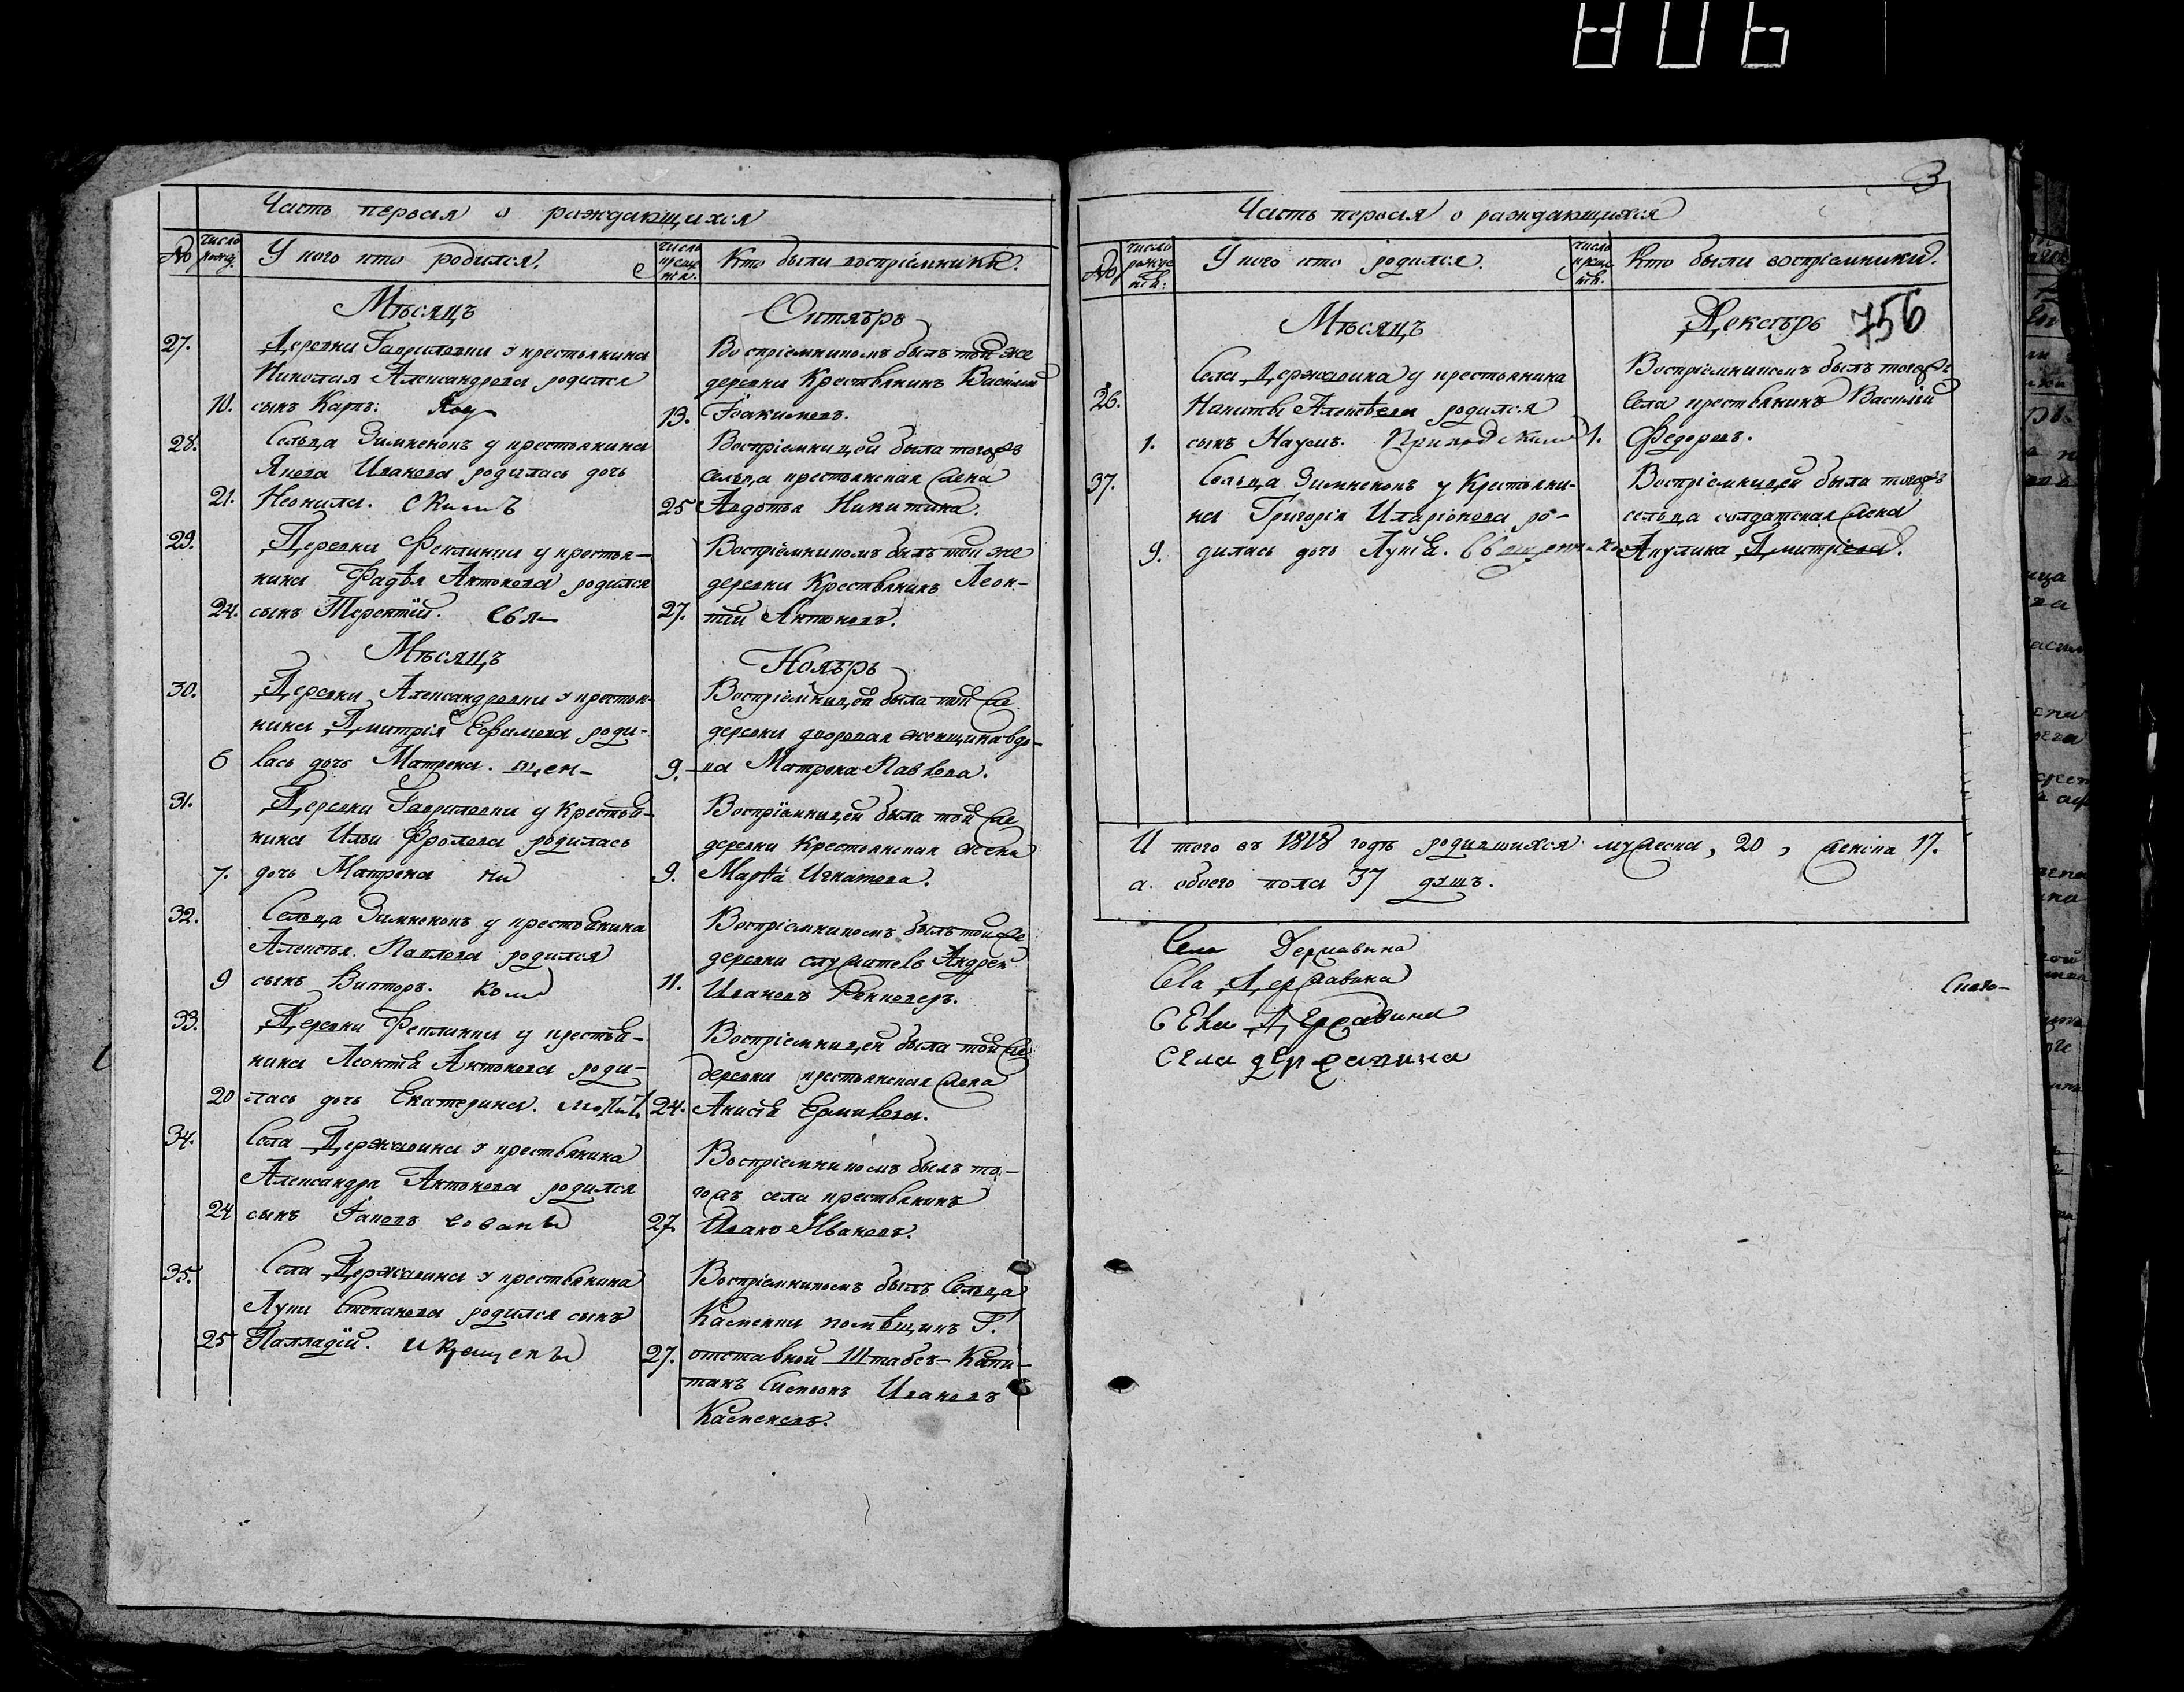 806
Часть первая о раждающихся
№ число рожд. У кого кто родился. число крещенiя. Кто были воспрiемники.
Мѣсяцъ Октябрь
27. Деревни Гавриловки у крестьянина
Николая Александрова родился
10. сынъ Карпъ.
Воспрiемникомъ былъ той же
деревни Крестьянинъ Василiй
13. Iоакимовъ.
28. Сельца Зимненокъ у крестьянина
Якова Иванова родилась дочь
21. Неонила. скимъ
Воспрiемницей была тогожъ
сельца крестьянская жена
25 Авдотья Никитина.
29. Деревни Феклинки у крестья-
нина Фадѣя Антонова родился
24. сынъ Терентiй. Свя-
Воспрiемникомъ былъ той же
деревни Крестьянинъ Леон-
27. тiй Антоновъ.
Мѣсяцъ Ноябрь
30. Деревни Александровки у крестья-
нина Дмитрiя Ефимова роди-
6 лась дочь Матрена. щен-
Воспрiемницей была той же
деревни дворовая женщина вдо-
9. ва Матрона Павлова.
31. Деревни Гавриловки у Крестья-
нина Ильи Фролова родилась
7. дочь Матрена ни
Воспрiемницей была той же
деревни Крестьянская жена
9. Марѳа Игнатова.
32. Сельца Зимненокъ у крестьянина
Алексѣя Павлова родился
9 сынъ Викторъ. комъ
Воспрiемникомъ былъ той же
деревни служитель Андрей
11. Ивановъ
33. Деревни Феклинки у крестья-
нина Леонтiя Антонова роди-
20 лась дочь Екатерина.
Воспрiемницей была той же
деревни крестьянская жена
24. Анисья Ермилова.
34. Села Державина у крестьянина
Александра Антонова родился
24 сынъ Iаковъ вованы
Воспрiемникомъ былъ то-
гожъ села крестьянинъ
27. Иванъ Ивановъ.
35. Села Державина у крестьянина
Луки Степанова родился сынъ
25 Палладiй. и крещены
Воспрiемникомъ былъ Сельца
Каменки помѣщикъ Г.
27. отставной Штабсъ-Капи-
танъ Симеонъ Ивановъ
Каменевъ.
3
Часть первая о раждающихся
№ число рождения: У кого кто родился. число крещенiя. Кто были воспрiемники.
Мѣсяцъ Декабрь 756
36. Села Державина у крестьянина
Никиты Алексѣева родился
1. сынъ Наумъ. Приходскимъ
Воспрiемникомъ былъ тогоже
села крестьянинъ Василiй
1. Федоровъ.
37. Сельца Зимненокъ у Крестьяни-
на Григорiя Иларiонова ро-
9. дилась дочь Лукiя. Священнико
Воспрiемницей была тогожъ
сельца солдатская жена
Акулина Дмитрiева.
И того въ 1818 годѣ родившихся мужеска, 20, женска 17.
а обоего пола 37 душъ.
Села Державина
Села Державина
Села Державина
села державина